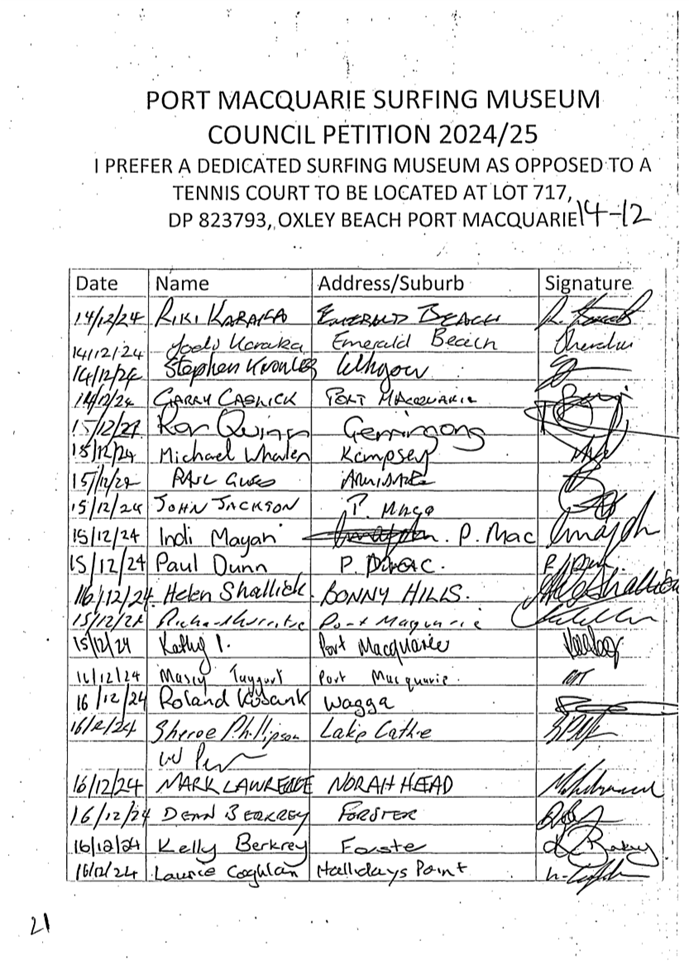 PORT MACQUARIE SURFING MUSEUM
COUNCIL PETITION 2024/25
I PREFER A DEDICATED SURFING MUSEUM AS OPPOSED TO A
TENNIS COURT TO BE LOCATED AT LOT 717,
DP 823793, OXLEY BEACH PORT MACQUARIE 14-12
Date Name Address/Suburb Signature
14/12/24 RIKI KARAKA EMERALD BEACH
14/12/24 Jodi Karaka Emerald Beach
14/12/24 Stephen Lithgow
14/12/24 GARRY PORT MACQUARIE
15/12/24 Ron Quinn Gerringong
15/12/24 Michael Whalen Kempsey
15/12/24 PAUL ARMIDALE
15/12/24 JOHN JACKSON P. MACQ
15/12/24 Indi Mayan P. Mac
15/12/24 Paul Dunn P. MAC.
16/12/24 Helen Shallick. BONNY HILLS.
15/12/24 Richard Port Macquarie
15/12/24 Kathy I. Port Macquarie
16/12/24 Port Macquarie.
16/12/24 Roland Wagga
16/12/24 Phillipson Lake Cathie
W
16/12/24 MARK LAWRENCE NORAH HEAD
16/12/24 DEAN BERKREY FORSTER
16/12/24 Kelly Berkrey Forste
16/12/24 Laurie Coghlan Hallidays Point
21